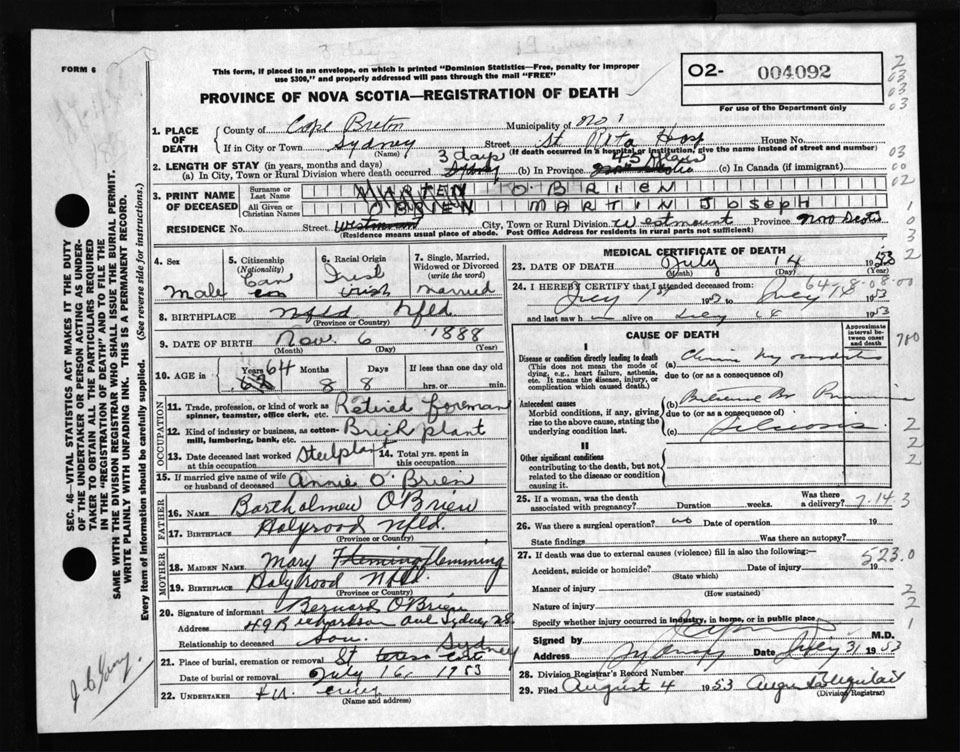 FORM 6
This form, if placed in an envelope, on which is printed "Dominion Statistics—Free, penalty for improper
use $300," and properly addressed will pass through the mail "FREE"
PROVINCE OF NOVA SCOTIA—REGISTRATION OF DEATH
02- 004092
For use of the Department only
1. PLACE OF DEATH
County of Cape Breton Municipality of No 1
If in City or Town Sydney Street St Rita Hosp House No.
(Name) (If death occurred in a hospital or institution, give the name instead of street and number)
2. LENGTH OF STAY (in years, months and days)
(a) In City, Town or Rural Division where death occurred 3 days Sydney (b) In Province 45 Years (c) In Canada (if immigrant)
3. PRINT NAME OF DECEASED
Surname or Last Name O'BRIEN
All Given or Christian Names MARTIN JOSEPH
RESIDENCE No. Street Westmount City, Town or Rural Division Westmount Province Nova Scotia
(Residence means usual place of abode. Post Office Address for residents in rural parts not sufficient)
4. Sex
Male
5. Citizenship (Nationality)
Can
6. Racial Origin
Irish
irish
7. Single, Married, Widowed or Divorced (write the word)
married
8. BIRTHPLACE Nfld Nfld.
(Province or Country)
9. DATE OF BIRTH Nov. 6 1888
(Month) (Day) (Year)
10. AGE in Years 64 Months 8 Days 8 If less than one day old
hrs. or min.
OCCUPATION
11. Trade, profession, or kind of work as spinner, teamster, office clerk, etc. Retired foreman
12. Kind of industry or business, as cotton-mill, lumbering, bank, etc. Brick plant
13. Date deceased last worked at this occupation Steelplant
14. Total yrs. spent in this occupation
15. If married give name of wife or husband of deceased Annie O'Brien
FATHER
16. NAME Bartholmew O'Brien
17. BIRTHPLACE Holyrood Nfld.
(Province or Country)
MOTHER
18. MAIDEN NAME Mary Fleming flemming
19. BIRTHPLACE Holyrood Nfld.
(Province or Country)
20. Signature of informant Bernard O'Brien
Address 49 Richardson Ave Sydney N.S.
Relationship to deceased son.
21. Place of burial, cremation or removal St Teresa Sydney
Date of burial or removal July 16, 1953
22. UNDERTAKER
(Name and address)
MEDICAL CERTIFICATE OF DEATH
23. DATE OF DEATH July 14 1953
(Month) (Day) (Year)
24. I HEREBY CERTIFY that I attended deceased from:
July 1st to July 1953
and last saw h alive on 1953
64-08-08-00
CAUSE OF DEATH
Approximate interval between onset and death
I
Disease or condition directly leading to death
(This does not mean the mode of dying, e.g., heart failure, asthenia, etc. It means the disease, injury, or complication which caused death.)
(a) Chronic Myocarditis
due to (or as a consequence of)
Antecedent causes
Morbid conditions, if any, giving rise to the above cause, stating the underlying condition last.
(b) Bilateral Br
due to (or as a consequence of)
(c) Silicosis
II
Other significant conditions
contributing to the death, but not related to the disease or condition causing it.
25. If a woman, was the death associated with pregnancy? Duration weeks. Was there a delivery?
7-14-3
26. Was there a surgical operation? no Date of operation 19
State findings Was there an autopsy?
27. If death was due to external causes (violence) fill in also the following:—
Accident, suicide or homicide? Date of injury 19
(State which)
523.0
Manner of injury
(How sustained)
Nature of injury
Specify whether injury occurred in industry, in home, or in public place
Signed by M.D.
Address Date July 31 1953
28. Division Registrar's Record Number
29. Filed August 4 1953
(Division Registrar)
SEC. 46—VITAL STATISTICS ACT MAKES IT THE DUTY
OF THE UNDERTAKER OR PERSON ACTING AS UNDER-
TAKER TO OBTAIN ALL THE PARTICULARS REQUIRED
IN THE "REGISTRATION OF DEATH" AND TO FILE THE
SAME WITH THE DIVISION REGISTRAR WHO SHALL ISSUE THE BURIAL PERMIT.
WRITE PLAINLY WITH UNFADING INK. THIS IS A PERMANENT RECORD.
Every item of information should be carefully supplied. (See reverse side for instructions.)